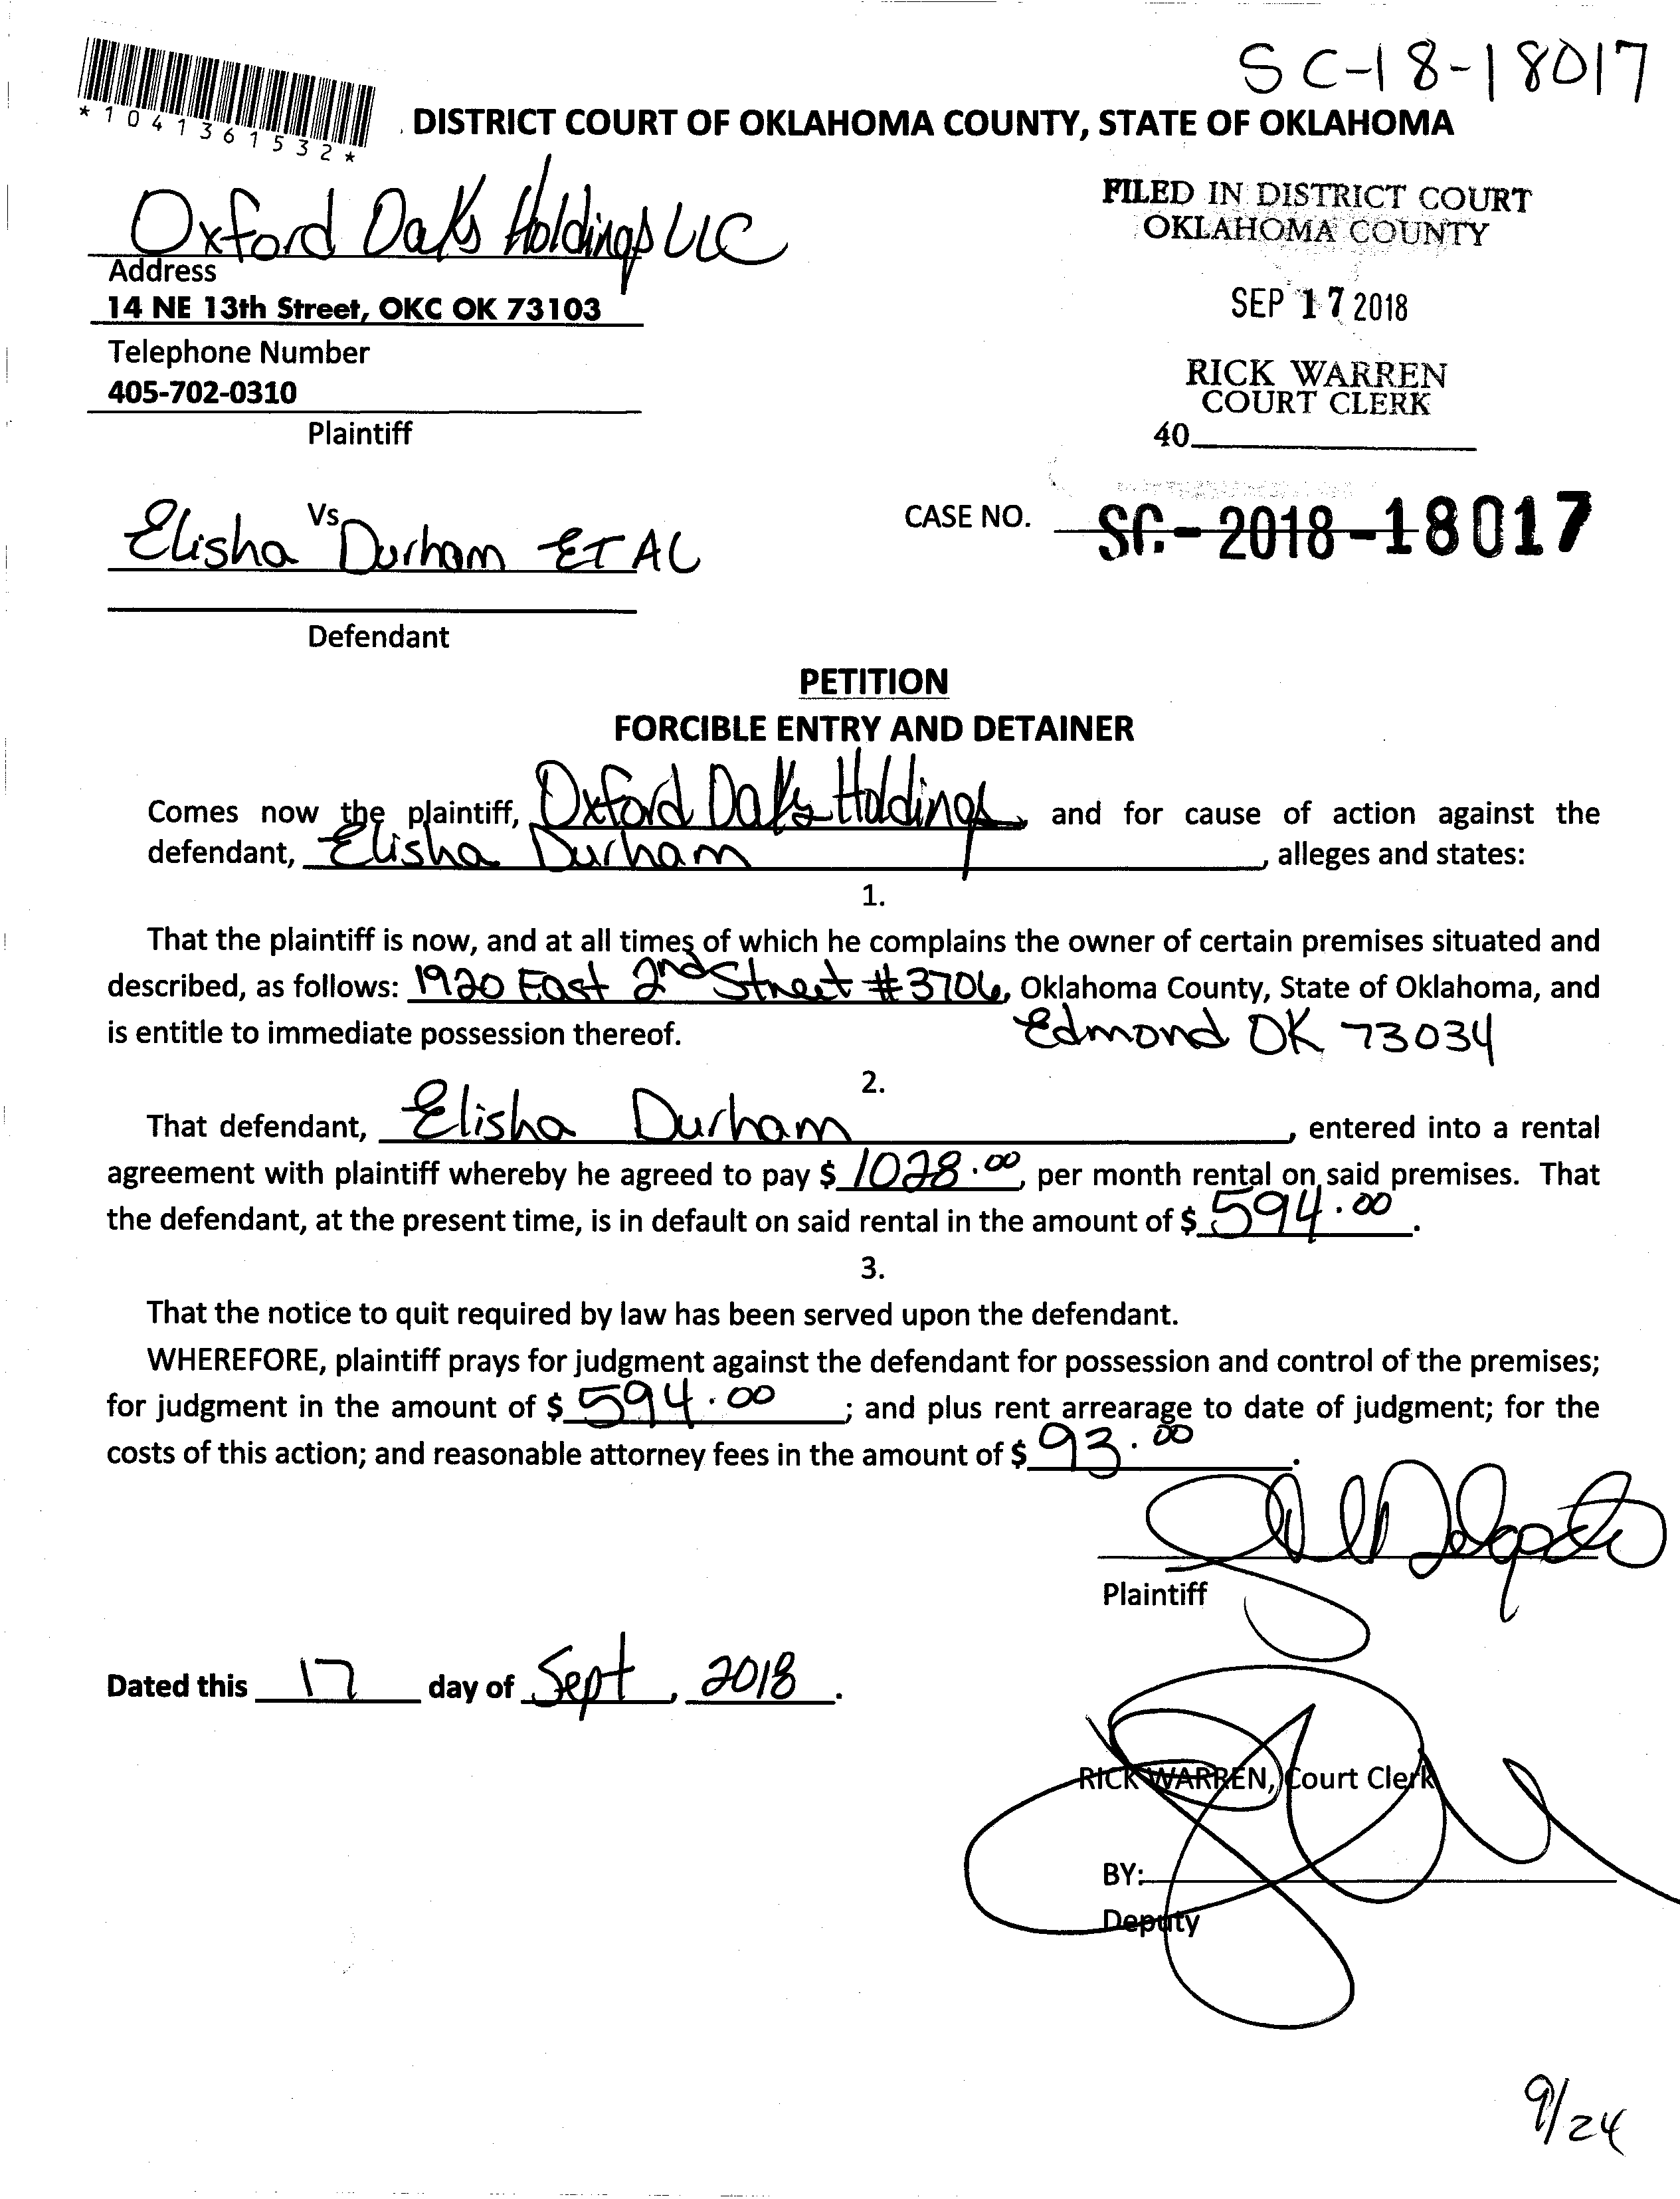 SC-18-18017
*1041361532*
DISTRICT COURT OF OKLAHOMA COUNTY, STATE OF OKLAHOMA
Oxford Oaks Holdings LLC
Address
14 NE 13th Street, OKC OK 73103
Telephone Number
405-702-0310
Plaintiff
FILED IN DISTRICT COURT
OKLAHOMA COUNTY
SEP 17 2018
RICK WARREN
COURT CLERK
40
Vs
Elisha Durham ET AL
Defendant
CASE NO. SC-2018-18017
PETITION
FORCIBLE ENTRY AND DETAINER
Comes now the plaintiff, Oxford Oaks Holdings, and for cause of action against the
defendant, Elisha Durham, alleges and states:
1.
That the plaintiff is now, and at all times of which he complains the owner of certain premises situated and
described, as follows: 1920 East 2nd Street #3706, Oklahoma County, State of Oklahoma, and
is entitle to immediate possession thereof. Edmond OK 73034
2.
That defendant, Elisha Durham, entered into a rental
agreement with plaintiff whereby he agreed to pay $ 1028.00, per month rental on said premises. That
the defendant, at the present time, is in default on said rental in the amount of $ 594.00.
3.
That the notice to quit required by law has been served upon the defendant.
WHEREFORE, plaintiff prays for judgment against the defendant for possession and control of the premises;
for judgment in the amount of $ 594.00; and plus rent arrearage to date of judgment; for the
costs of this action; and reasonable attorney fees in the amount of $ 93.00.
Plaintiff
Dated this 17 day of Sept, 2018.
RICK WARREN, Court Clerk
BY:
Deputy
9/24